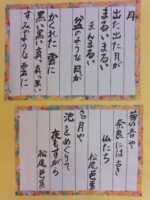 月
出た出た月が
まるいまるい
まんまるい
盆のような月が
かくれた雲に
黒い黒い真っ黒い
すみのような雲に
菊の香や
奈良には古き
仏たち
松尾芭蕉
名月や
池をめぐりて
夜もすがら
松尾芭蕉